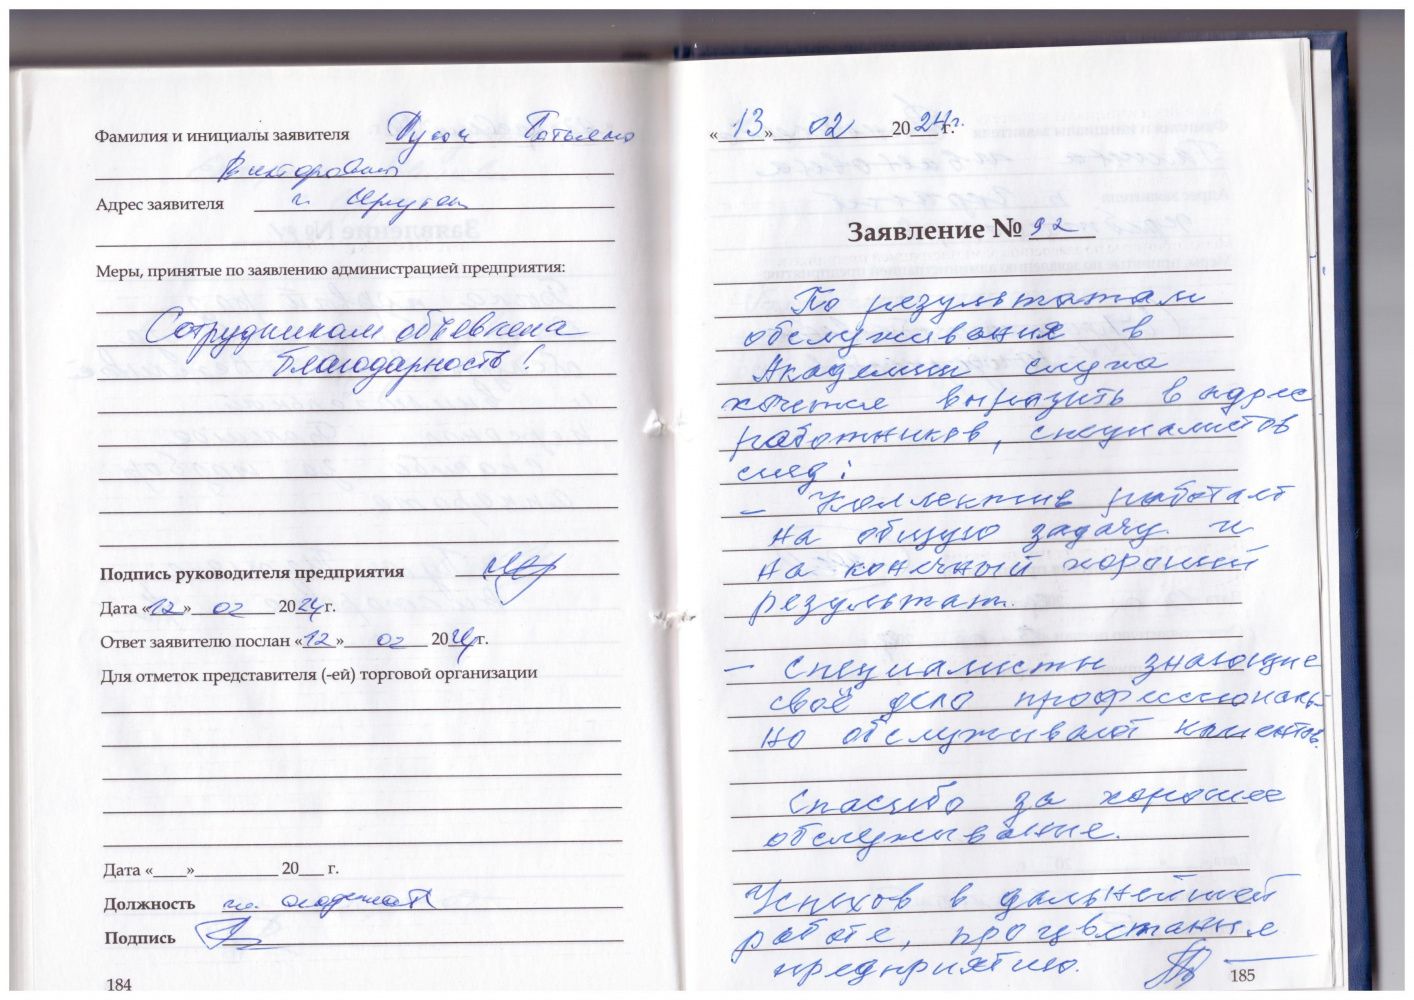 Фамилия и инициалы заявителя Татьяна
Викторовна
Адрес заявителя г. Иркутск
Меры, принятые по заявлению администрацией предприятия:
Сотрудникам объявлена
благодарность!
Подпись руководителя предприятия
Дата «12» 02 2024 г.
Ответ заявителю послан «12» 02 2024 г.
Для отметок представителя (-ей) торговой организации
Дата «____»__________ 20___ г.
Должность
Подпись
184
«13» 02 2024 г. г.
Заявление № 92
По результатам
обслуживания в
Академии слуха
хочется выразить в адрес
работников, специалистов
след:
- Коллектив работает
на общую задачу и
на конечный хороший
результат.
- Специалисты знающие
своё дело профессиональ-
но обслуживают клиентов.
Спасибо за хорошее
обслуживание.
Успехов в дальнейшей
работе, процветания
предприятию.
185